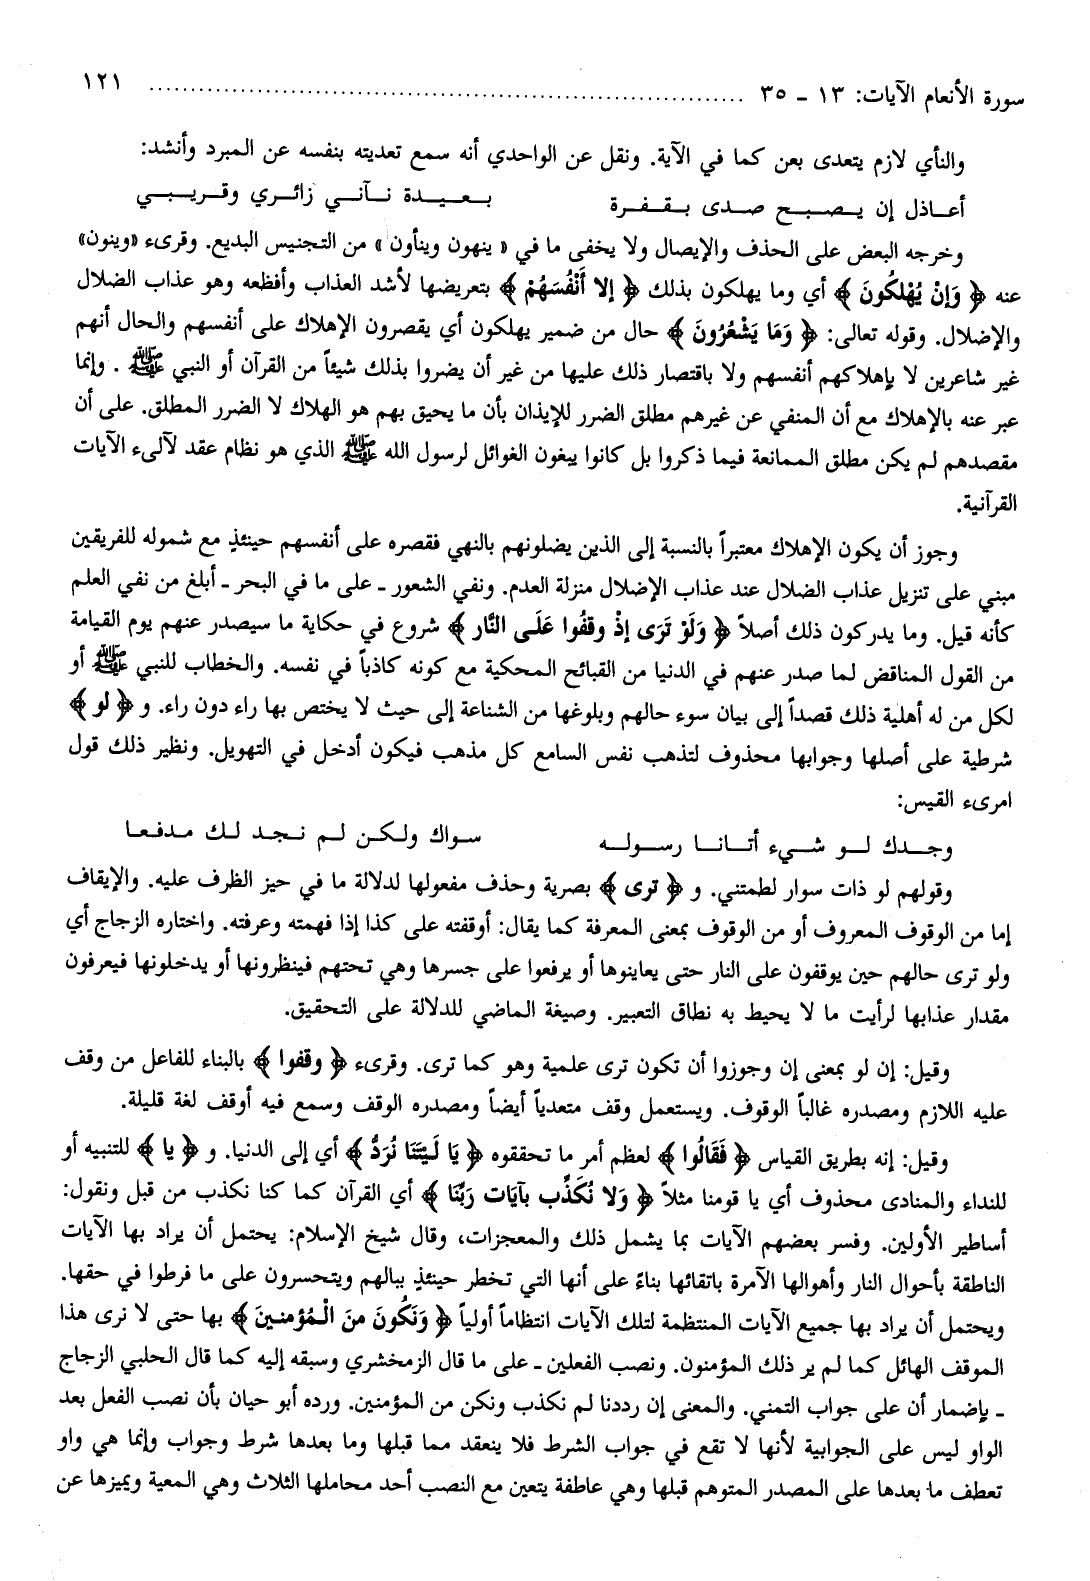 سورة الأنعام الآيات: ١٣ ـ ٣٥ ........................................................................ ١٢١
والنأي لازم يتعدى بعن كما في الآية. ونقل عن الواحدي أنه سمع تعديته بنفسه عن المبرد وأنشد:
أعـاذل إن يـصـبـح صـدى بـقـفـرة بـعـيـدة نـآنـي زائـري وقـريـبـي
وخرجه البعض على الحذف والإيصال ولا يخفى ما في « ينهون وينأون » من التجنيس البديع. وقرىء «وينون»
عنه ﴿ وَإنْ يُهْلكُونَ ﴾ أي وما يهلكون بذلك ﴿ إلا أَنْفُسَهُمْ ﴾ بتعريضها لأشد العذاب وأفظعه وهو عذاب الضلال
والإضلال. وقوله تعالى: ﴿ وَمَا يَشْعُرُونَ ﴾ حال من ضمير يهلكون أي يقصرون الإهلاك على أنفسهم والحال أنهم
غير شاعرين لا بإهلاكهم أنفسهم ولا باقتصار ذلك عليها من غير أن يضروا بذلك شيئاً من القرآن أو النبي ﷺ . وإنما
عبر عنه بالإهلاك مع أن المنفي عن غيرهم مطلق الضرر للإيذان بأن ما يحيق بهم هو الهلاك لا الضرر المطلق. على أن
مقصدهم لم يكن مطلق الممانعة فيما ذكروا بل كانوا يبغون الغوائل لرسول الله ﷺ الذي هو نظام عقد لآلىء الآيات
القرآنية.
وجوز أن يكون الإهلاك معتبراً بالنسبة إلى الذين يضلونهم بالنهي فقصره على أنفسهم حينئذٍ مع شموله للفريقين
مبني على تنزيل عذاب الضلال عند عذاب الإضلال منزلة العدم. ونفي الشعور ـ على ما في البحر ـ أبلغ من نفي العلم
كأنه قيل. وما يدركون ذلك أصلاً ﴿ وَلَوْ تَرَى إذْ وقفُوا عَلَى النَّار ﴾ شروع في حكاية ما سيصدر عنهم يوم القيامة
من القول المناقض لما صدر عنهم في الدنيا من القبائح المحكية مع كونه كاذباً في نفسه. والخطاب للنبي ﷺ أو
لكل من له أهلية ذلك قصداً إلى بيان سوء حالهم وبلوغها من الشناعة إلى حيث لا يختص بها راء دون راء. و ﴿ لو ﴾
شرطية على أصلها وجوابها محذوف لتذهب نفس السامع كل مذهب فيكون أدخل في التهويل. ونظير ذلك قول
امرىء القيس:
وجـدك لـو شـيء أتـانـا رسـولـه سـواك ولـكـن لـم نـجـد لـك مـدفـعـا
وقولهم لو ذات سوار لطمتني. و ﴿ ترى ﴾ بصرية وحذف مفعولها لدلالة ما في حيز الظرف عليه. والإيقاف
إما من الوقوف المعروف أو من الوقوف بمعنى المعرفة كما يقال: أوقفته على كذا إذا فهمته وعرفته. واختاره الزجاج أي
ولو ترى حالهم حين يوقفون على النار حتى يعاينوها أو يرفعوا على جسرها وهي تحتهم فينظرونها أو يدخلونها فيعرفون
مقدار عذابها لرأيت ما لا يحيط به نطاق التعبير. وصيغة الماضي للدلالة على التحقيق.
وقيل: إن لو بمعنى إن وجوزوا أن تكون ترى علمية وهو كما ترى. وقرىء ﴿ وقفوا ﴾ بالبناء للفاعل من وقف
عليه اللازم ومصدره غالباً الوقوف. ويستعمل وقف متعدياً أيضاً ومصدره الوقف وسمع فيه أوقف لغة قليلة.
وقيل: إنه بطريق القياس ﴿ فَقَالُوا ﴾ لعظم أمر ما تحققوه ﴿ يَا لَيتَنَا نُرَدُّ ﴾ أي إلى الدنيا. و ﴿ يا ﴾ للتنبيه أو
للنداء والمنادى محذوف أي يا قومنا مثلاً ﴿ وَلا نُكَذِّب بآيَات رَبِّنَا ﴾ أي القرآن كما كنا نكذب من قبل ونقول:
أساطير الأولين. وفسر بعضهم الآيات بما يشمل ذلك والمعجزات، وقال شيخ الإسلام: يحتمل أن يراد بها الآيات
الناطقة بأحوال النار وأهوالها الآمرة باتقائها بناءً على أنها التي تخطر حينئذٍ ببالهم ويتحسرون على ما فرطوا في حقها.
ويحتمل أن يراد بها جميع الآيات المنتظمة لتلك الآيات انتظاماً أولياً ﴿ وَنَكُونَ منَ الْمُؤمنـينَ ﴾ بها حتى لا نرى هذا
الموقف الهائل كما لم ير ذلك المؤمنون. ونصب الفعلين ـ على ما قال الزمخشري وسبقه إليه كما قال الحلبي الزجاج
ـ بإضمار أن على جواب التمني. والمعنى إن رددنا لم نكذب ونكن من المؤمنين. ورده أبو حيان بأن نصب الفعل بعد
الواو ليس على الجوابية لأنها لا تقع في جواب الشرط فلا ينعقد مما قبلها وما بعدها شرط وجواب وإنما هي واو
تعطف ما بعدها على المصدر المتوهم قبلها وهي عاطفة يتعين مع النصب أحد محاملها الثلاث وهي المعية ويميزها عن